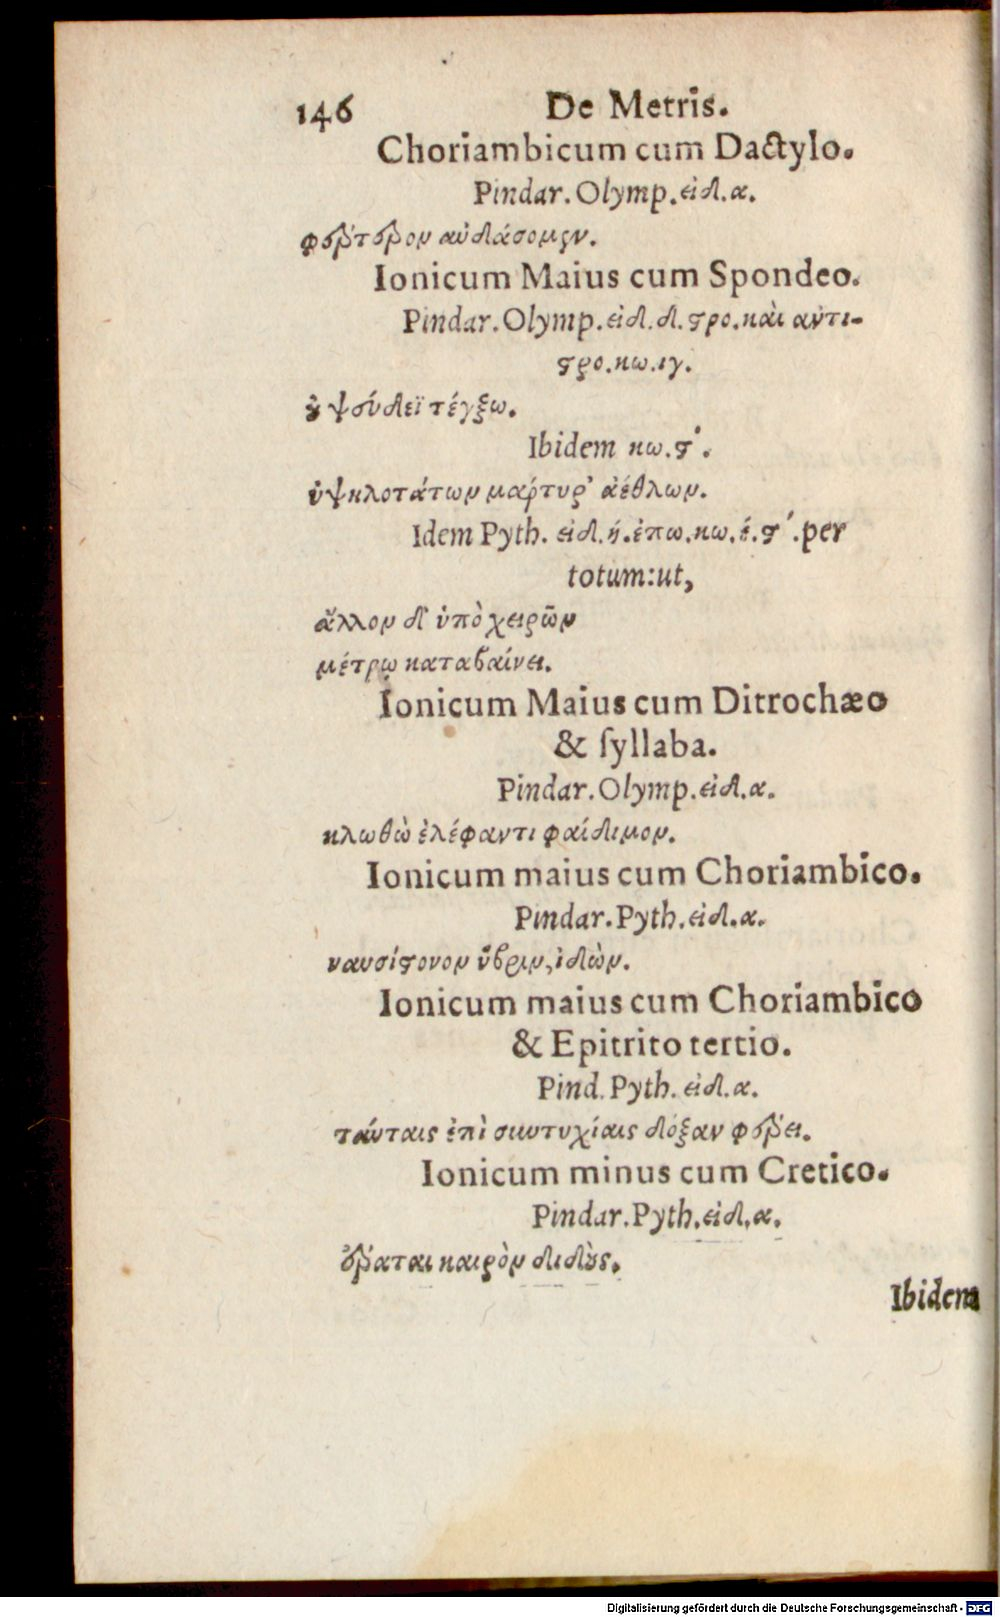 146 De Metris.
Choriambicum cum Dactylo.
Pindar. Olymp. εἰδ. α.
φέρτερον αὐδάσομεν.
Ionicum Maius cum Spondeo.
Pindar. Olymp. εἰδ. δ. ϛρο. καὶ αντι-
ϛρο. κω. ιγ.
ȣ̓ ψεύδεϊ τέγξω.
Ibidem κω. ϛ΄.
ὑψηλοτάτων μαρτυρ' ἀέθλων.
Idem Pyth. εἰδ. ή. ἐπω. κω. έ. ϛ΄. per
totum: ut,
ἄλλον δ' ὑπὸ χειρῶν
μέτρῳ καταβαίνει.
Ionicum Maius cum Ditrochæo
& ſyllaba.
Pindar. Olymp. εἰδ. α.
κλωθὼ ἐλέφαντι φαίδιμον.
Ionicum maius cum Choriambico.
Pindar. Pyth. εἰδ. α.
ναυσίϛονον ὕβριν, ἰδὼν.
Ionicum maius cum Choriambico
& Epitrito tertio.
Pind. Pyth. εἰδ. α.
ταύταις ἐπὶ συντυχίαις δόξαν φέρει.
Ionicum minus cum Cretico.
Pindar. Pyth. εἰδ. α.
ἔραται καιρὸν διδȣ̀ς.
Ibidem
Digitalisierung gefördert durch die Deutsche Forschungsgemeinschaft - DFG